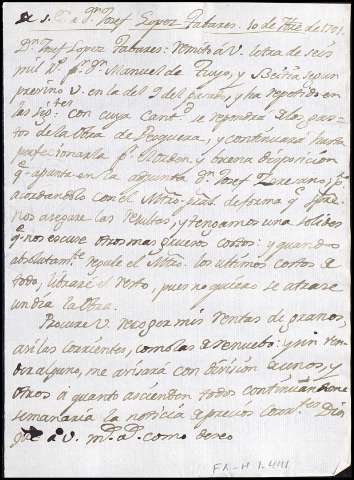 S. C. a Dn. Josef Lopez Pabares. 10 de
Dn. Josef Lopez Pabares: remito a V. letra de seis
mil Dn. Manuel de Trujo, y Beitia segun
previno V. en la del 9 del pasado, y ha repetido en
las con cuya Cantd. se repondra de los gas-
tos de la Obra de Poquera, y continuará hasta
perfecionarla pr. el orden, y buena disposicion
qe. apunta en la adjunta Dn. Josef Lorenzo,
acordandolo con el Mtro. de forma qe. siempre
nos asegure las resultas, y tengamos una solidez
qe. nos escuse otros mas gruesos costos: y quando
absolutamte. regule el Mtro. los ultimos costos de
todo, libraré el resto, pues no quiero se atrase
un dia la Obra.
Procure V. recoger mis rentas de granos,
asi las corrientes, como las de renuebos: y sin ven-
der alguno, me avisará con division de unos, y
otros á quanto ascienden todos continuandome
semanaria la noticia de precios Dios
gue. a V. ms. as. como deseo
FA-H 1-411